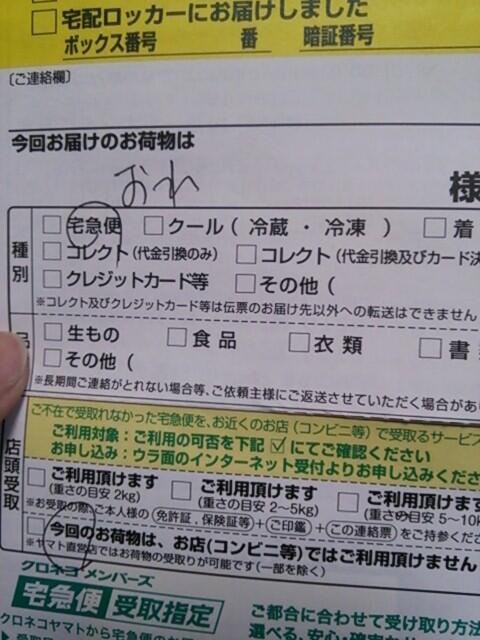 □ 宅配ロッカーにお届けしました
ボックス番号 番 暗証番号
〔ご連絡欄〕
今回お届けのお荷物は
おれ 様
種別
□ 宅急便 □ クール（ 冷蔵 ・ 冷凍 ） □ 着
□ コレクト（代金引換のみ） □ コレクト（代金引換及びカード決
□ クレジットカード等 □ その他（
※コレクト及びクレジットカード等は伝票のお届け先以外への転送はできません
品
□ 生もの □ 食 品 □ 衣 類 □ 書
□ その他（
※長期間ご連絡がとれない場合等、ご依頼主様にご返送させていただく場合があ
店頭受取
ご不在で受取れなかった宅急便を、お近くのお店（コンビニ等）で受取るサービス
ご利用対象：ご利用の可否を下記 ☑ にてご確認ください
お申し込み：ウラ面のインターネット受付よりお申し込みくださ
□ ご利用頂けます □ ご利用頂けます □ ご利用頂けます
（重さの目安 2kg） （重さの目安 2〜5kg） （重さの目安 5〜10k
※お受取の際、ご本人様の（免許証、保険証等）＋（ご印鑑）＋（この連絡票）をご持参くださ
□ 今回のお荷物は、お店（コンビニ等）ではご利用頂けません
※ヤマト直営店ではお荷物の受取りが可能です（一部を除く）
クロネコ メンバーズ
宅急便 受取指定
クロネコヤマトから宅急便のお
ご都合に合わせて受け取り方